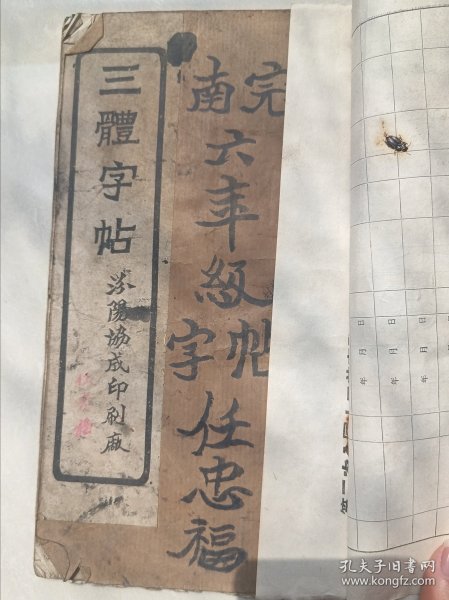 三體字帖
汾陽協成印刷廠
南完
六年級
字帖
任忠福
年 月 日
年 月 日
年 月 日
孔夫子旧书网
www.kongfz.com